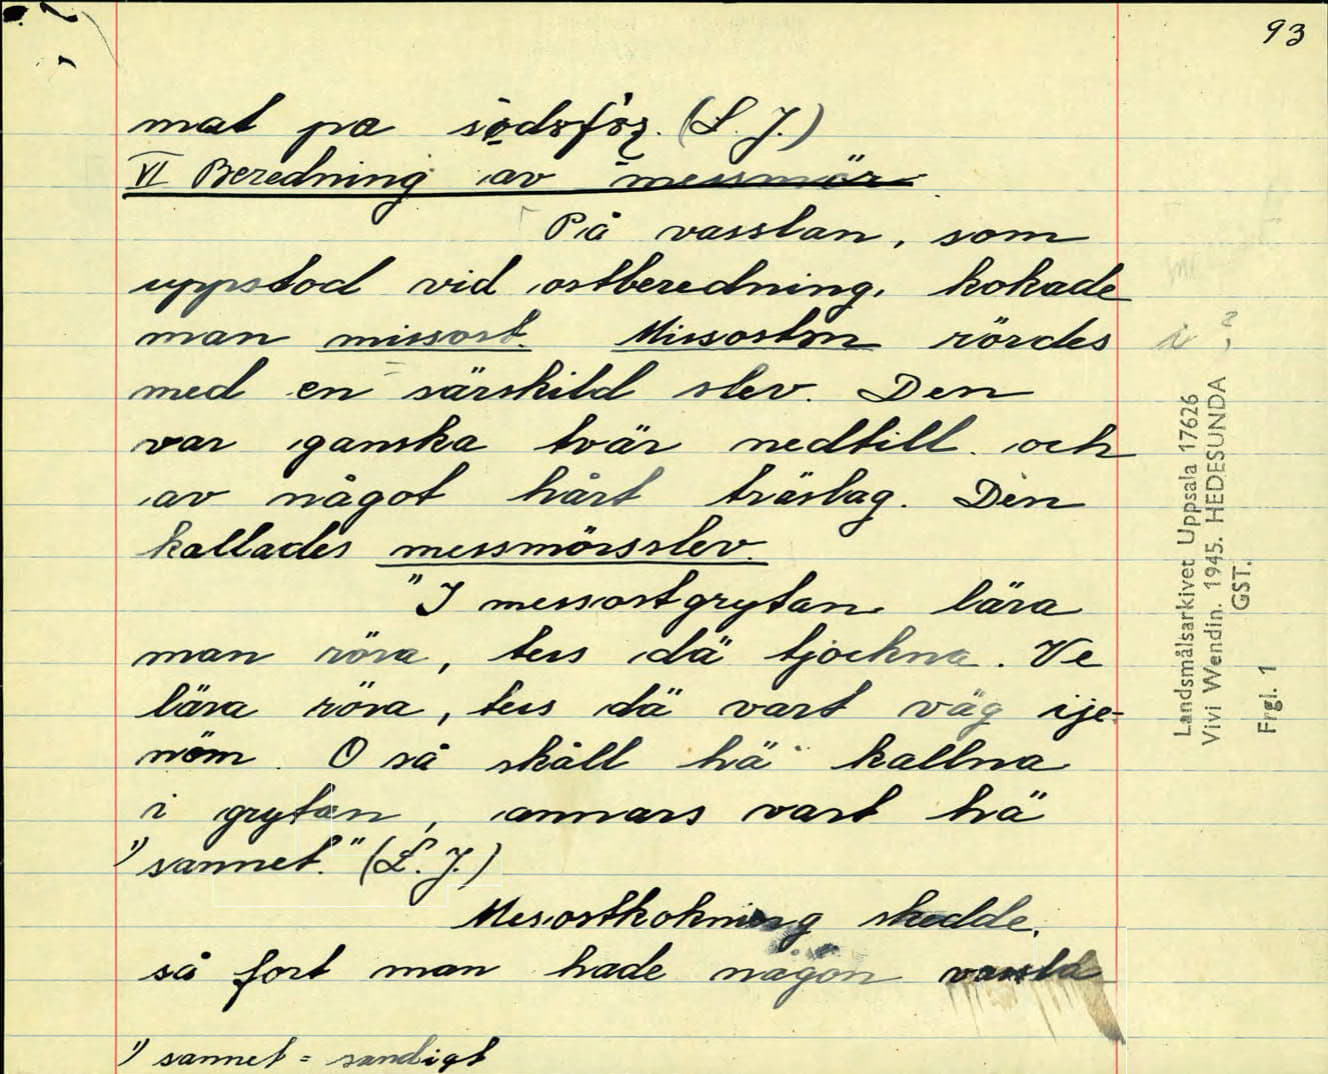 93
mat pα
(L. J.)
VI Beredning av messmör.
På vasslan, som
uppstod vid ostberedning, kokade
man missost. Missosten rördes
med en särskild slev. Den
var ganska tvär nedtill och
av något hårt träslag. Den
kallades messmörsslev.
"I messostgrytan lära
man röra, tess dä tjockna. Ve
lära röra, tess dä vart väg ije-
nöm. O så skåll hä kallna
i grytan, annars vart hä
1) sannet." (L. J.)
Mesostkokning skedde,
så fort man hade någon vassla
1) sannet = sandigt
Landsmålsarkivet Uppsala 17626
Vivi Wendin. 1945. HEDESUNDA
GST.
Frgl. 1